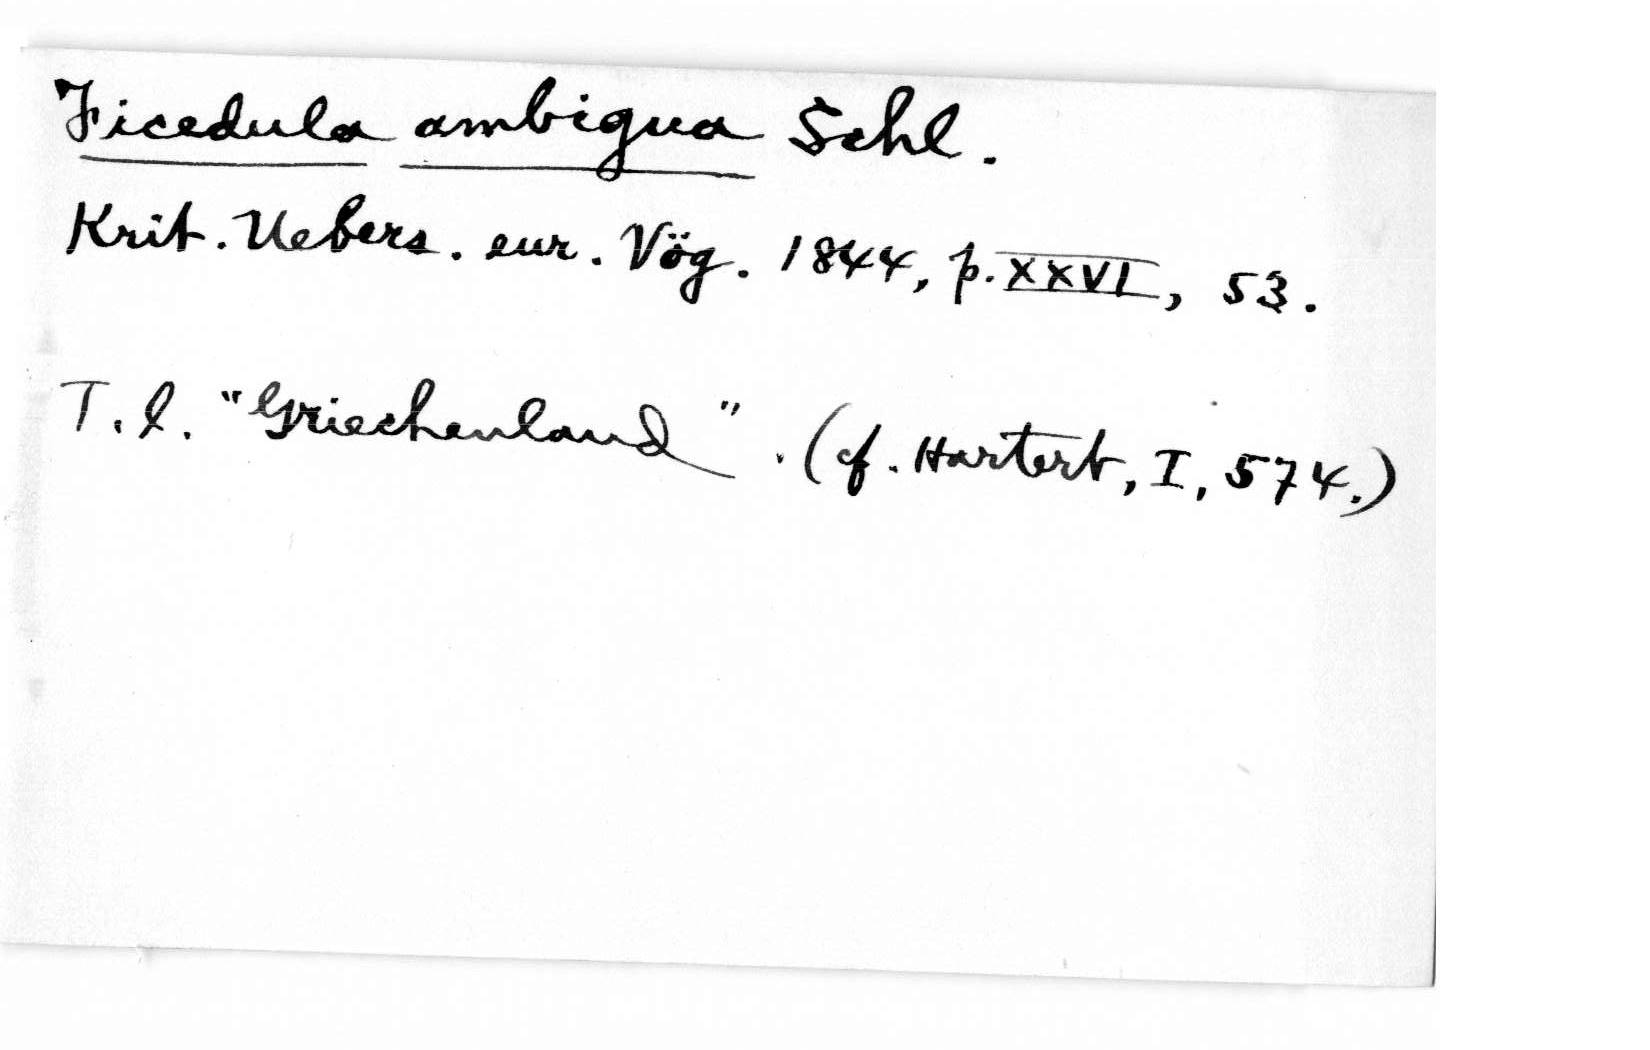 Ficedula ambigua Schl.
Krit. Uebers. eur. Vög. 1844, p. XXVI, 53.
T. l. "Griechenland". (cf. Hartert, I, 574.)